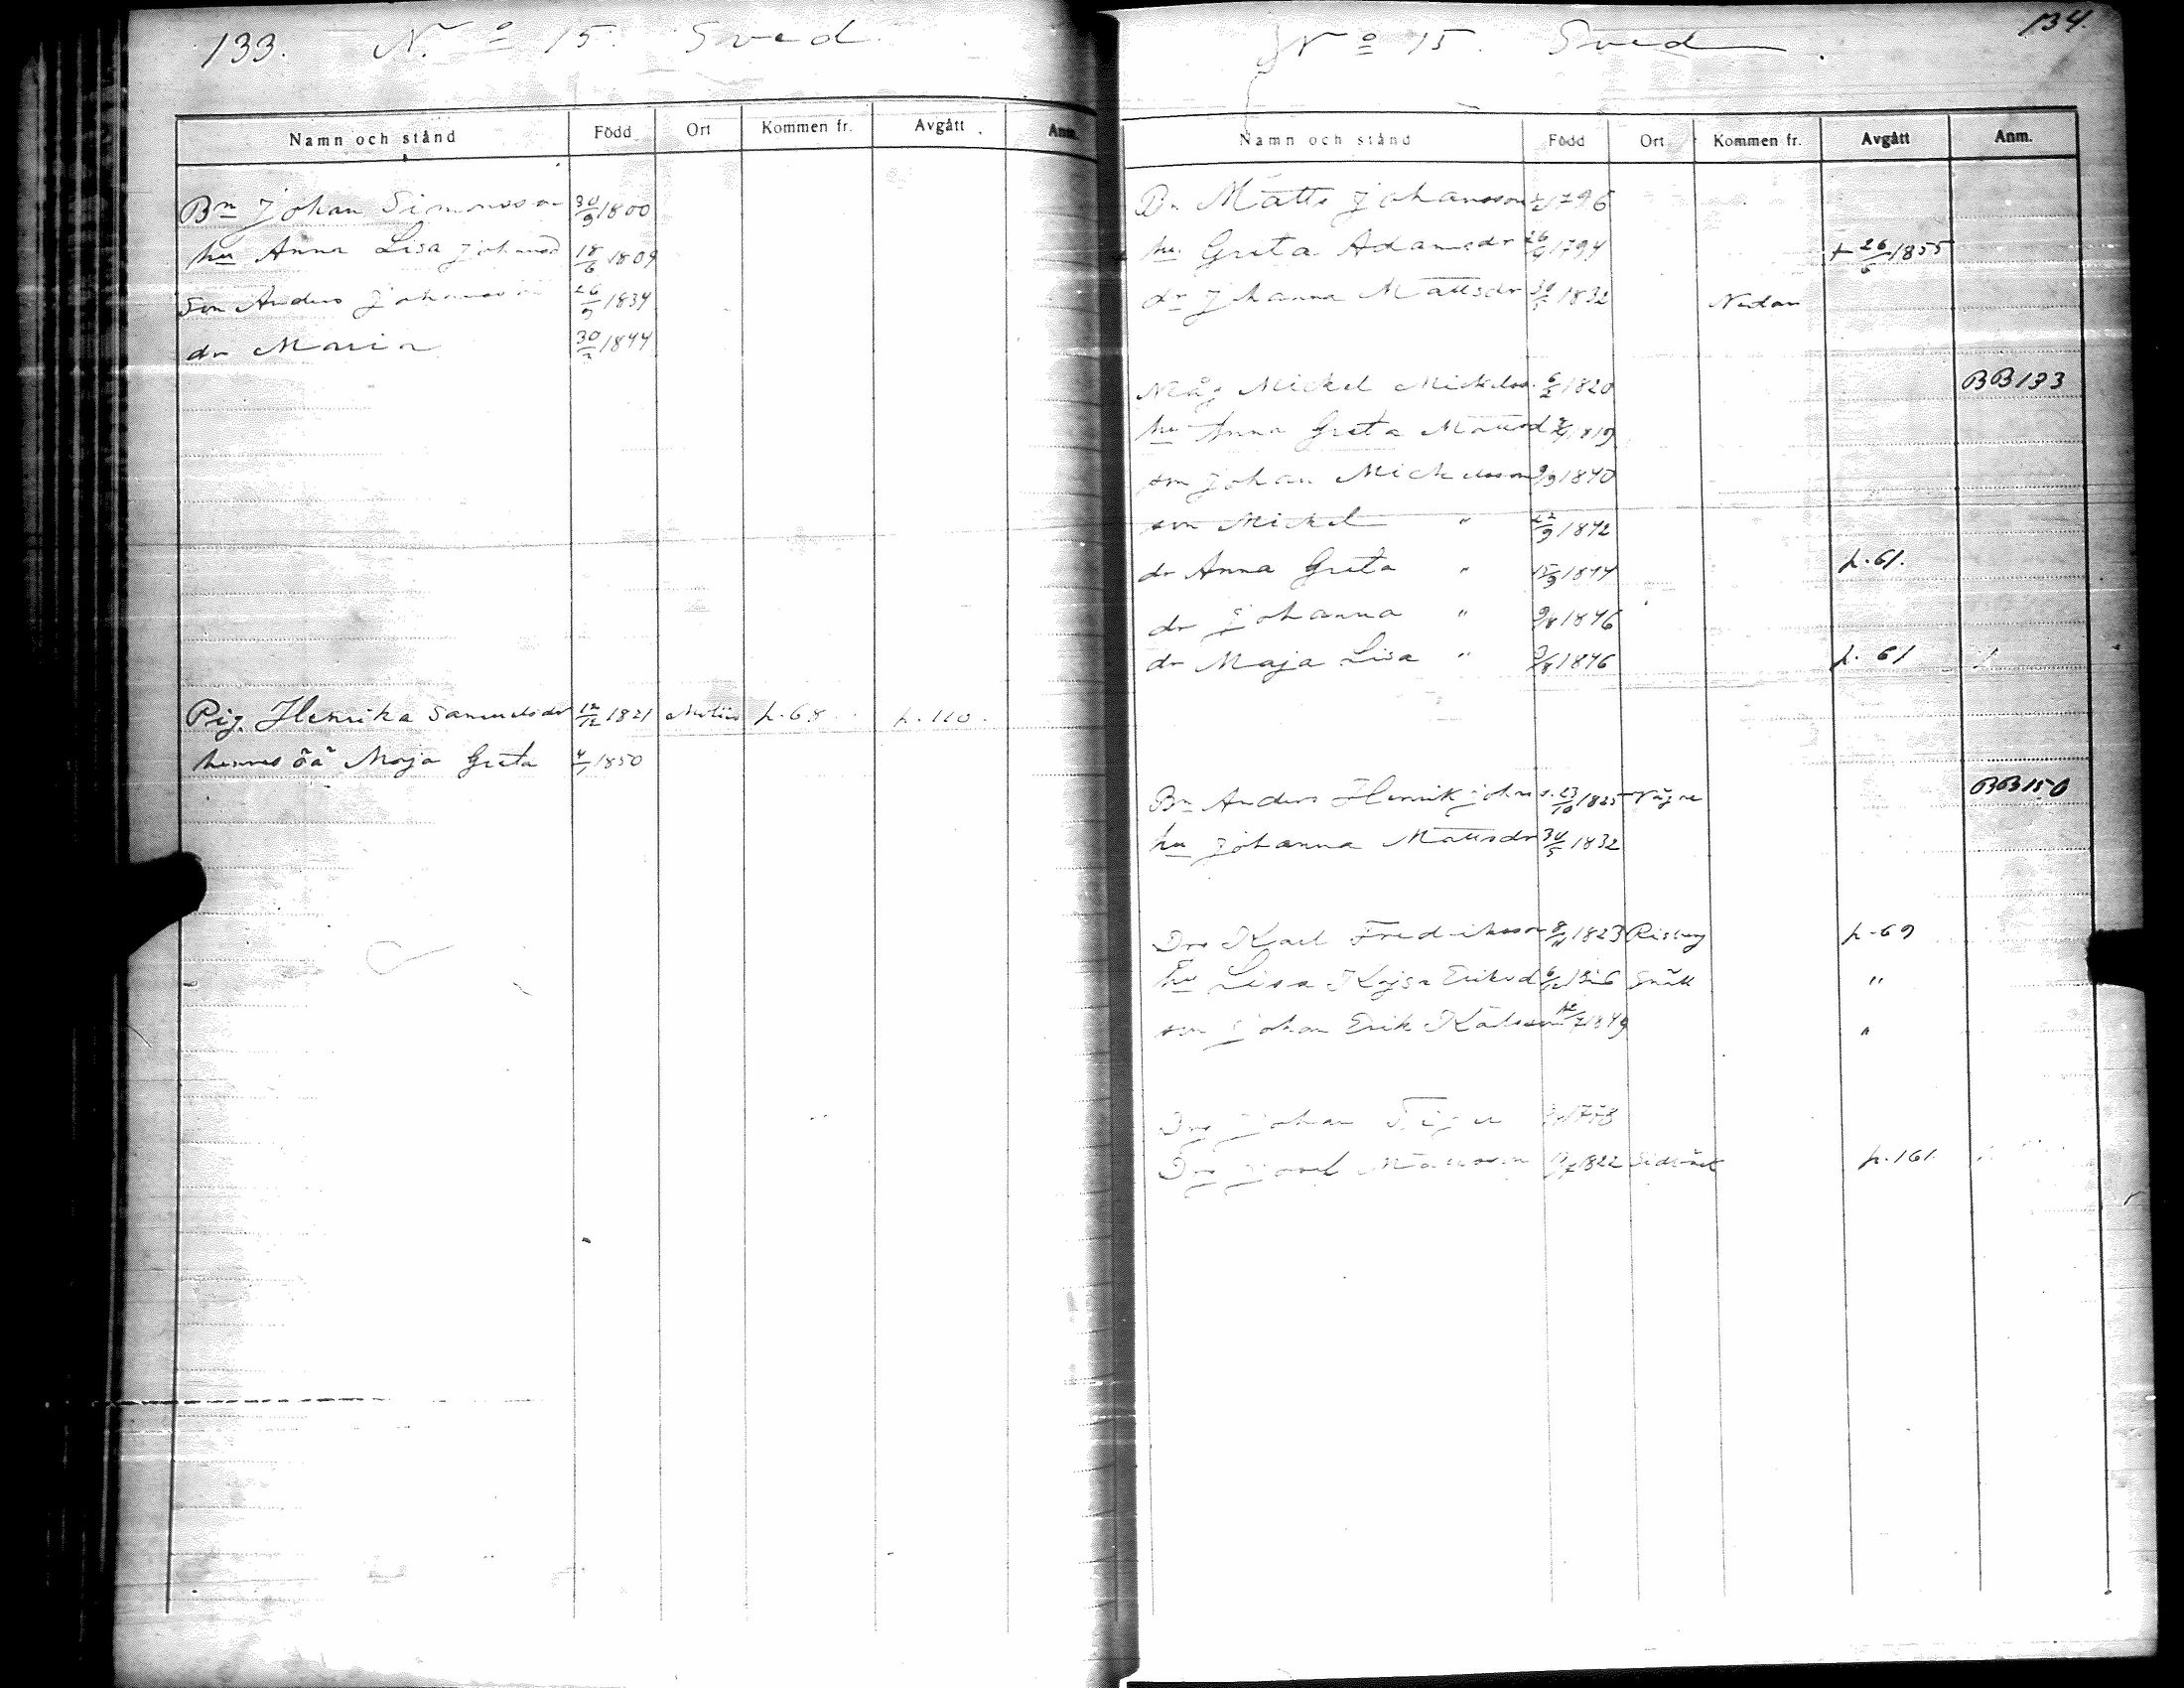 133. No 15. Sved.
Namn och stånd Född Ort Kommen fr. Avgått Anm.
Bn Johan Simonsson 30/9 1800
hu Anna Lisa Johansd 18/6 1809
son Anders Johansson 26/9 1834
dr Maria 30/3 1844
Pig. Henrika Samuelsdr 12/12 1821 p. 68 p. 110.
hennes oä Maja Greta 4/1 1850
134.
No 15. Sved
Namn och stånd Född Ort Kommen fr. Avgått Anm.
Bn Matts Johansson 1796
hu Greta Adamsdr 26/9 1794 + 26/5 1855
dr Johanna Mattsdr 30/5 1832 Nedan
Måg Mickel Mickelss. 6/2 1820 BB133
hu Anna Greta Mattsd 1819
son Johan Mickelsson 9/9 1840
son Mickel " 22/9 1842
dr Anna Greta " 15/9 1844 p. 61.
dr Johanna " 9/8 1846
dr Maja Lisa " 9/8 1846 p. 61
Bn Anders Henrik Johns s. 23/10 1825 BB150
hu Johanna Mattsdr 30/5 1832
Dre Karl Fredriksson 8/11 1823 Risberg p. 69
hu Lisa Kajsa Eriksd "
son Johan Erik Karlsson 1849 "
Dre Johan 1778
Dre Josef Mattsson 1822 p. 161.